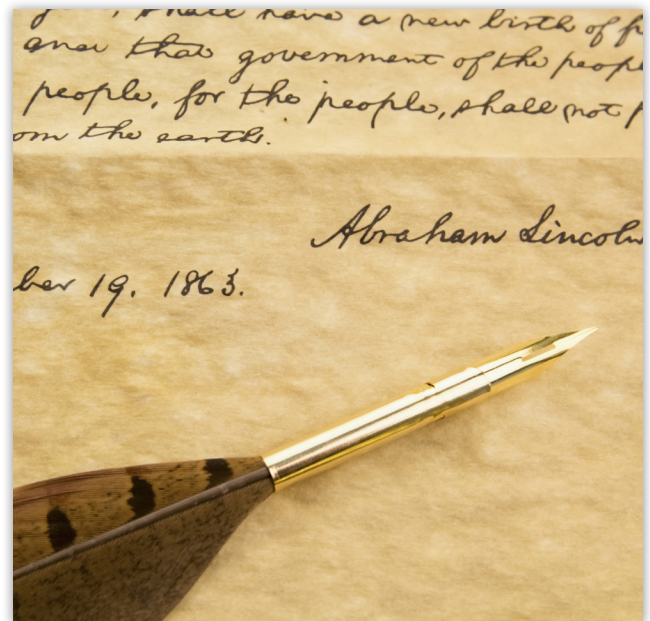 shall have a new birth of
and that government of the
people, for the people, shall not
the earth.
Abraham Lincoln
19. 1863.